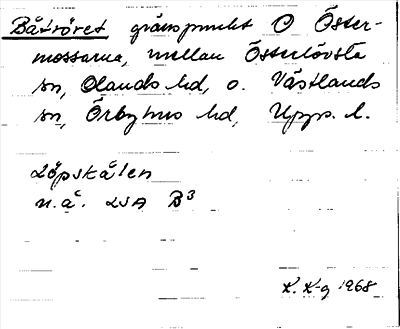 Båtröret gränspunkt O Öster-
mossarna, mellan Österlövsta
sn, Olands hd, o. Västlands
sn, Örbyhus hd, Upps. l.
Löpskälen
n.ä. LSA B³
K. K-g 1968